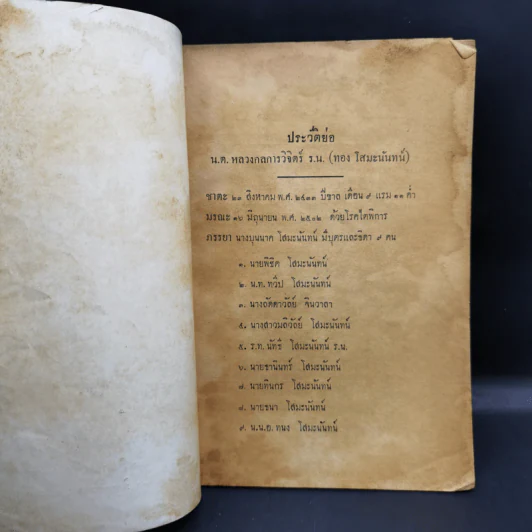 ประวัติย่อ
น.ต. หลวงกลการวิจิตร์ ร.น. (ทอง โสมะนันทน์)
ชาตะ ๒๑ สิงหาคม พ.ศ. ๒๔๓๓ ปีขาล เดือน ๙ แรม ๑๑ ค่ำ
มรณะ ๑๖ มิถุนายน พ.ศ. ๒๕๐๒ ด้วยโรคไตพิการ
ภรรยา นางบุนนาค โสมะนันทน์ มีบุตรและธิดา ๙ คน
๑. นายพิชิต โสมะนันทน์
๒. น.ท. ทวีป โสมะนันทน์
๓. นางลัดดาวัลย์ จินวาลา
๔. นางสาวมลิวัลย์ โสมะนันทน์
๕. ร.ท. นัทธี โสมะนันทน์ ร.น.
๖. นายชานินทร์ โสมะนันทน์
๗. นายทินกร โสมะนันทน์
๘. นายธนา โสมะนันทน์
๙. น.น.อ. ทนง โสมะนันทน์